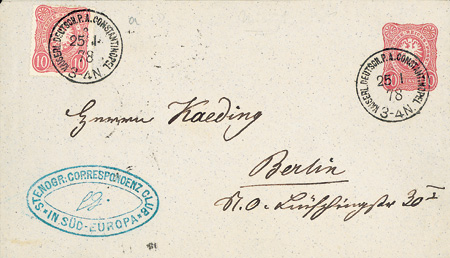 a
KAISERL. DEUTSCH. P. A. CONSTANTINOPEL
25 1
78
3-4N.
10
KAISERL. DEUTSCH. P. A. CONSTANTINOPEL
25 1
78
3-4N.
Herrn Kaeding
Berlin
N.O. Lüschingstr 30 I
STENOGR. CORRESPONDENZ CLUB
IN SÜD-EUROPA